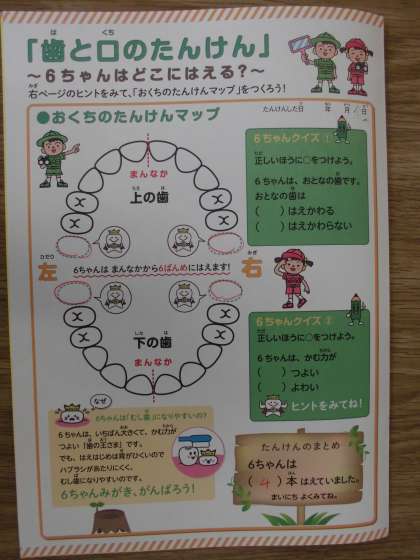 「歯と口のたんけん」
～6ちゃんはどこにはえる？～
右ページのヒントをみて、「おくちのたんけんマップ」をつくろう！
たんけんした日 年 月 日
●おくちのたんけんマップ
まんなか
上の歯
左
右
6ちゃんは まんなかから6ばんめにはえます！
下の歯
まんなか
6ちゃんクイズ①
正しいほうに○をつけよう。
6ちゃんは、おとなの歯です。
おとなの歯は
( ) はえかわる
( ) はえかわらない
6ちゃんクイズ②
正しいほうに○をつけよう。
6ちゃんは、かむ力が
( ) つよい
( ) よわい
ヒントをみてね！
なぜ
6ちゃんは「むし歯」になりやすいの？
6ちゃんは、いちばん大きくて、かむ力が
つよい「歯の王さま」です。
でも、はえはじめは背がひくいので
ハブラシがあたりにくく、
むし歯になりやすいのです。
6ちゃんみがき、がんばろう！
たんけんのまとめ
6ちゃんは
( 4 ) 本 はえていました。
まいにち よくみてね。